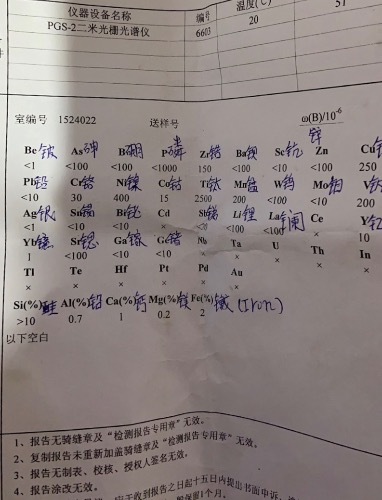 仪器设备名称 编号 温度(℃)
PGS-2二米光栅光谱仪 6603 20 51
室编号 1524022 送样号 ω(B)/10⁻⁶
Be铍 As砷 B硼 P磷 Zr锆 Ba钡 Sc钪 Zn锌 Cu
<1 <100 <100 <1000 150 <100 <10 <100 250
Pb铅 Cr铬 Ni镍 Co钴 Ti钛 Mn锰 W钨 Mo钼 V
<10 30 400 15 2500 200 <100 <10 200
Ag银 Sn锡 Bi铋 Cd Sb锑 Li锂 La镧 Ce Y钇
<1 <10 <10 × <200 <100 <100 × <10
Yb镱 Sr锶 Ga镓 Ge锗 Nb Ta U Th In
1 <100 <10 <10 × × × × 10
Tl Te Hf Pt Pd Au
× × × × × ×
Si(%)硅 Al(%)铝 Ca(%)钙 Mg(%)镁 Fe(%)铁 (Iron)
>10 0.7 1 0.2 2
以下空白
1、报告无骑缝章及“检测报告专用章”无效。
2、复制报告未重新加盖骑缝章及“检测报告专用章”无效。
3、报告无制表、校核、授权人签名无效。
4、报告涂改无效。
收到报告之日起十五日内提出书面申诉，
保留1个月。